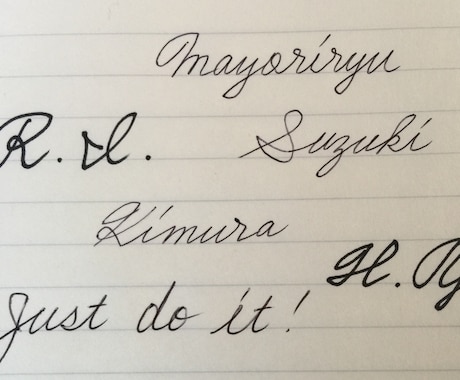 Mayoriryu
R. I.
Suzuki
Kimura
H. Y
Just do it!